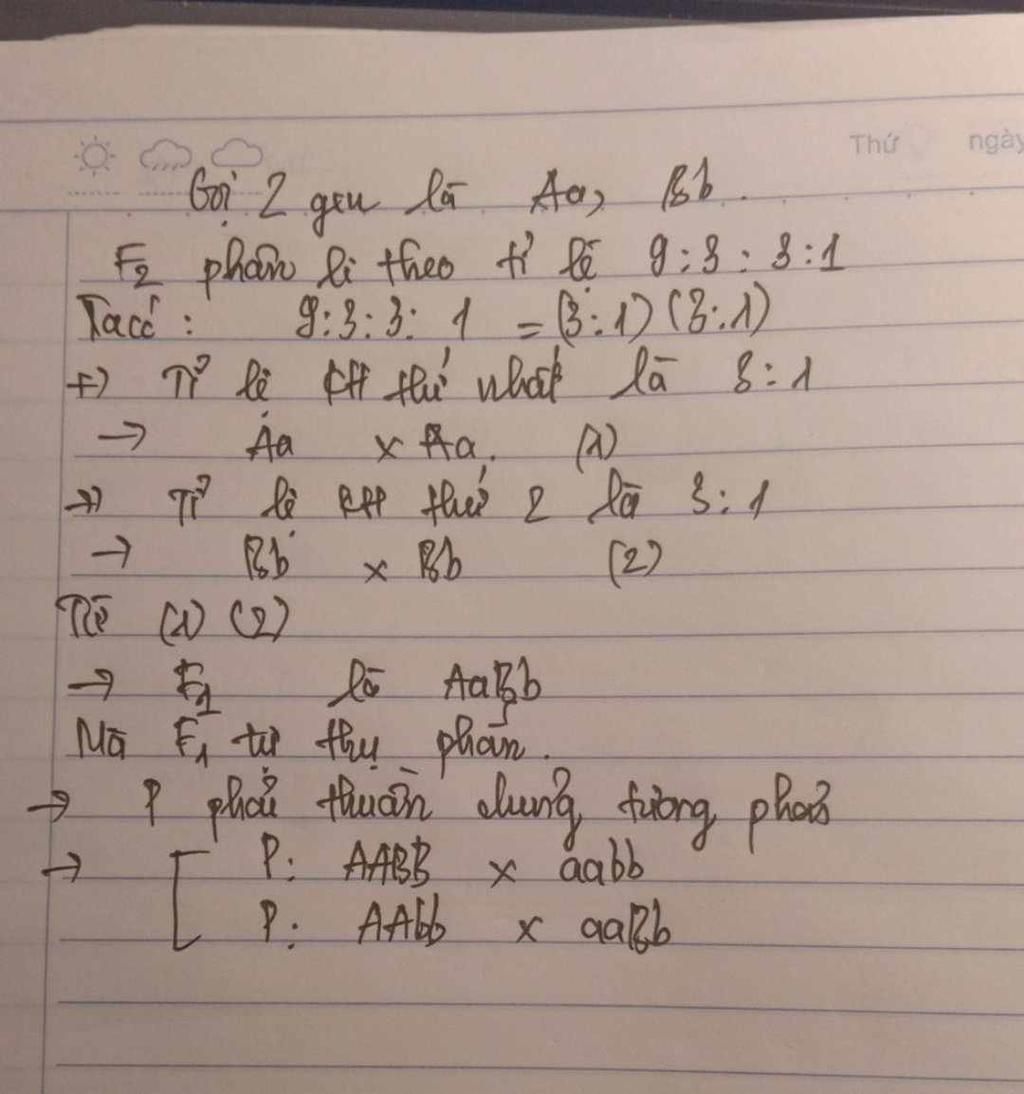 Thứ ngày
Gọi 2 gen là Aa, Bb.
F2 phân li theo tỉ lệ 9:3:3:1
Ta có: 9:3:3:1 = (3:1)(3:1)
+) Tỉ lệ KH thứ nhất là 3:1
→ Aa x Aa. (1)
+) Tỉ lệ KH thứ 2 là 3:1
→ Bb x Bb (2)
Từ (1) (2)
→ F1 là AaBb
Mà F1 tự thụ phấn.
→ P phải thuần chủng tương phản
→ [ P: AABB x aabb
P: AAbb x aaBb